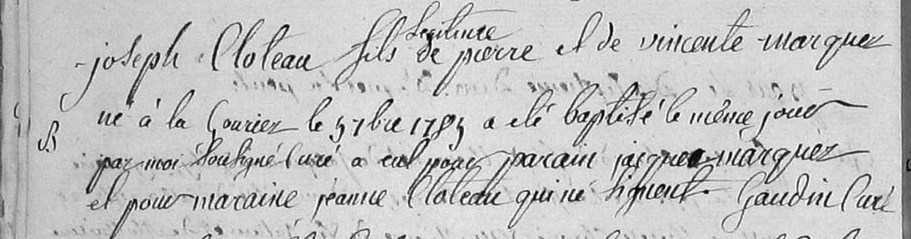 joseph Cloteau fils légitime de pierre et de vincente marquez
né à la Couriez le 5 7bre 1785 a été baptisé le même jour
B
par moi soussigné Curé a eut pour parain jacques marquez
et pour maraine jeanne Cloteau qui ne signent. Gaudin Curé